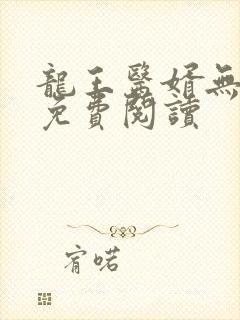 龍王醫婿無
免費閱讀
宥喏